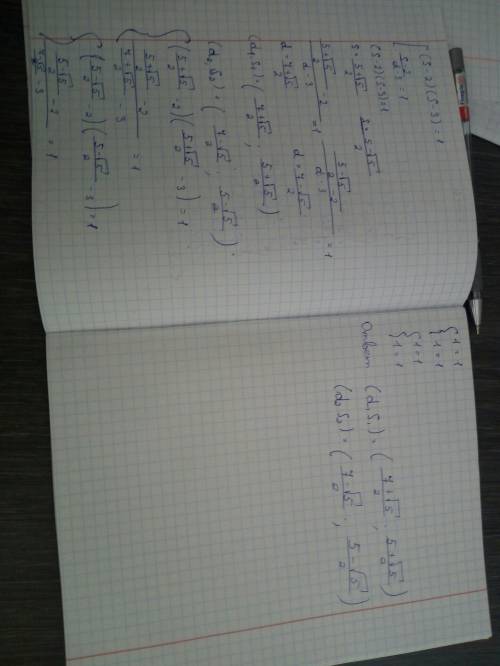 { (S-2)(S-3)=1
{ \frac{S-2}{d-3}=1
(S-2)(S-3)=1
S=\frac{5+\sqrt{5}}{2} S=\frac{5-\sqrt{5}}{2}
\frac{\frac{5+\sqrt{5}}{2}-2}{d-3}=1 \frac{\frac{5-\sqrt{5}}{2}-2}{d-3}=1
d=\frac{7+\sqrt{5}}{2} d=\frac{7-\sqrt{5}}{2}
(d_1, S_1)=(\frac{7+\sqrt{5}}{2}, \frac{5+\sqrt{5}}{2})
(d_2, S_2)=(\frac{7-\sqrt{5}}{2}, \frac{5-\sqrt{5}}{2}).
{ (\frac{5+\sqrt{5}}{2}-2)(\frac{5+\sqrt{5}}{2}-3)=1
{ \frac{\frac{5+\sqrt{5}}{2}-2}{\frac{7+\sqrt{5}}{2}-3}=1
{ (\frac{5-\sqrt{5}}{2}-2)(\frac{5-\sqrt{5}}{2}-3)=1
{ \frac{\frac{5-\sqrt{5}}{2}-2}{\frac{7-\sqrt{5}}{2}-3}=1
{ 1=1
{ 1=1
{ 1=1
{ 1=1
Ответ (d_1, S_1)=(\frac{7+\sqrt{5}}{2}, \frac{5+\sqrt{5}}{2})
(d_2, S_2)=(\frac{7-\sqrt{5}}{2}, \frac{5-\sqrt{5}}{2})